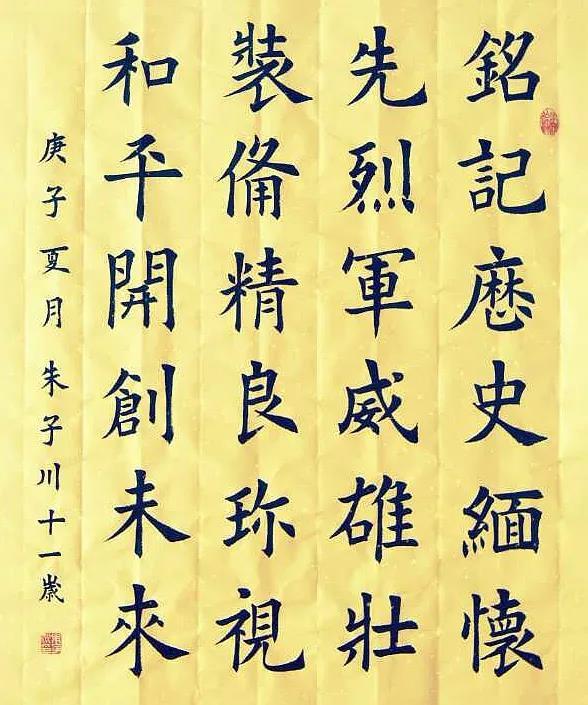 銘記歷史緬懷
先烈軍威雄壯
裝備精良珎視
和平開創未來
庚子夏月 朱子川十一歲